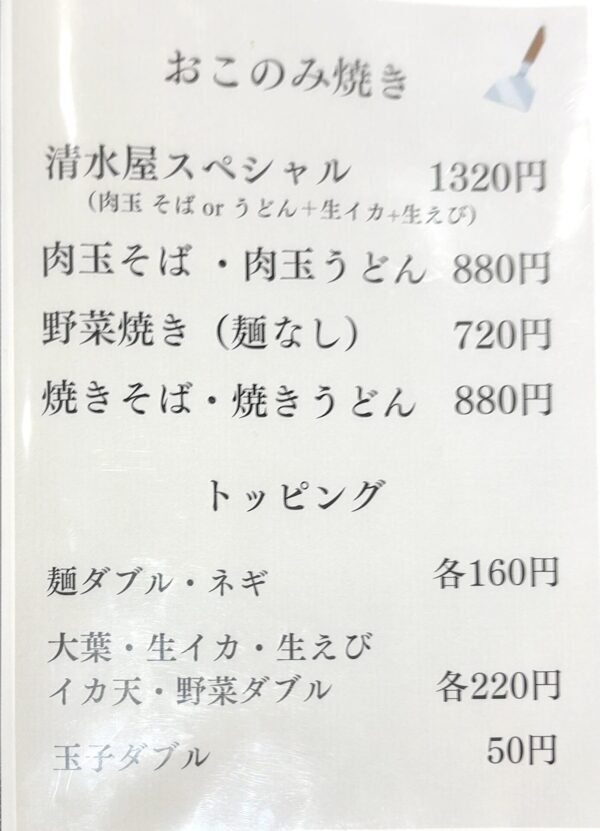 おこのみ焼き
清水屋スペシャル 1320円
（肉玉 そば or うどん＋生イカ+生えび）
肉玉そば ・肉玉うどん 880円
野菜焼き（麺なし） 720円
焼きそば・焼きうどん 880円
トッピング
麺ダブル・ネギ 各160円
大葉・生イカ・生えび
イカ天・野菜ダブル 各220円
玉子ダブル 50円